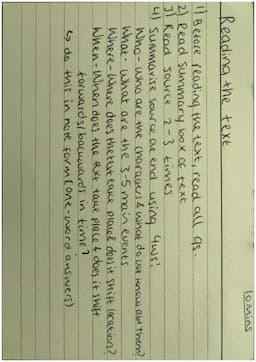 10mins
Reading the text
1) Before reading the text, read all qs.
2) Read summary box of text
3) Read source 2-3 times
4) Summarise source at end using 4ws:
Who - Who are the characters & what do we know abt them?
What - What are the 3-5 main events
Where - Where does the text take place & does it shift location?
When - When does the text take place & does it shift
forwards/backwards in time?
↳ do this in note form (one-word answers)